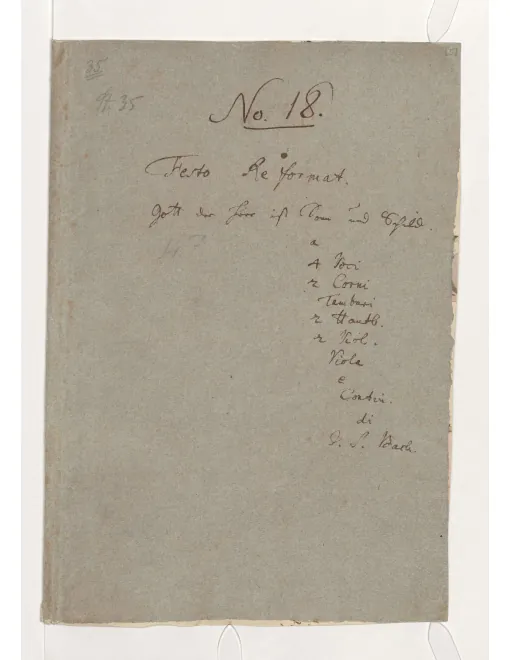 35
A 35
No. 18.
Festo Reformat.
Gott der Herr ist Sonn und Schild.
a
4 Voci
2 Corni
Tamburi
2 Hautb.
2 Viol.
Viola
e
Contin.
di
J. S. Bach.